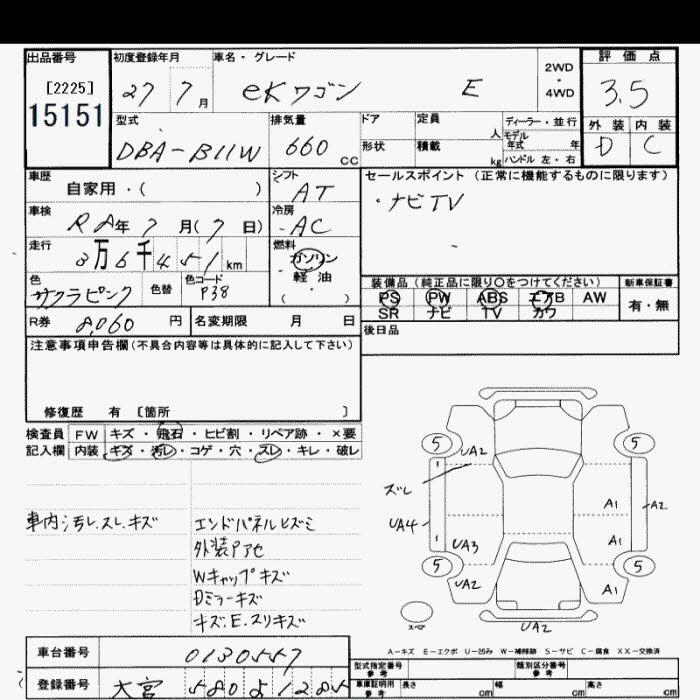 出品番号 初度登録年月 車名・グレード 2WD・4WD 評価点
[2225] 27 7月 eKワゴン E 3.5
15151
型式 排気量 ドア 定員 人 ディーラー・並行 外装 内装
DBA-B11W 660cc 形状 積載 kg モデル年式 年 D C
ハンドル 左・右
車歴 シフト セールスポイント (正常に機能するものに限ります)
自家用・( ) AT ・ナビTV
車検 冷房
R8年7月(7日) AC
走行 燃料
3万6千451km ガソリン
軽油
( )
色 色替 色コード 装備品 (純正品に限り○をつけてください) 新車保証書
サクラピンク P38 PS PW ABS エアB AW 有・無
SR ナビ TV カワ
R券 8,060円 名変期限 月 日 後日品
注意事項申告欄(不具合内容等は具体的に記入して下さい)
修復歴 有 〔箇所 〕
検査員 FW キズ・飛石・ヒビ割・リペア跡・×要
記入欄 内装 キズ・汚レ・コゲ・穴・スレ・キレ・破レ
車内汚レ.スレ.キズ エンドパネルヒズミ
外装アセ
Wキャップキズ
Dミラーキズ
キズ.E.スリキズ
5 UA2 5
ズレ
A1 A2
UA4
UA3 A1
5 5
UA2 A1
スペア UA2
A-キズ E-エクボ U-凹み W-補修跡 S-サビ C-腐食 XX-交換済
車台番号 0130557 型式指定番号 参考 類別区分番号 参考
登録番号 大宮 580 よ 1285 車庫証明用 参考 長さ cm 幅 cm 高さ cm